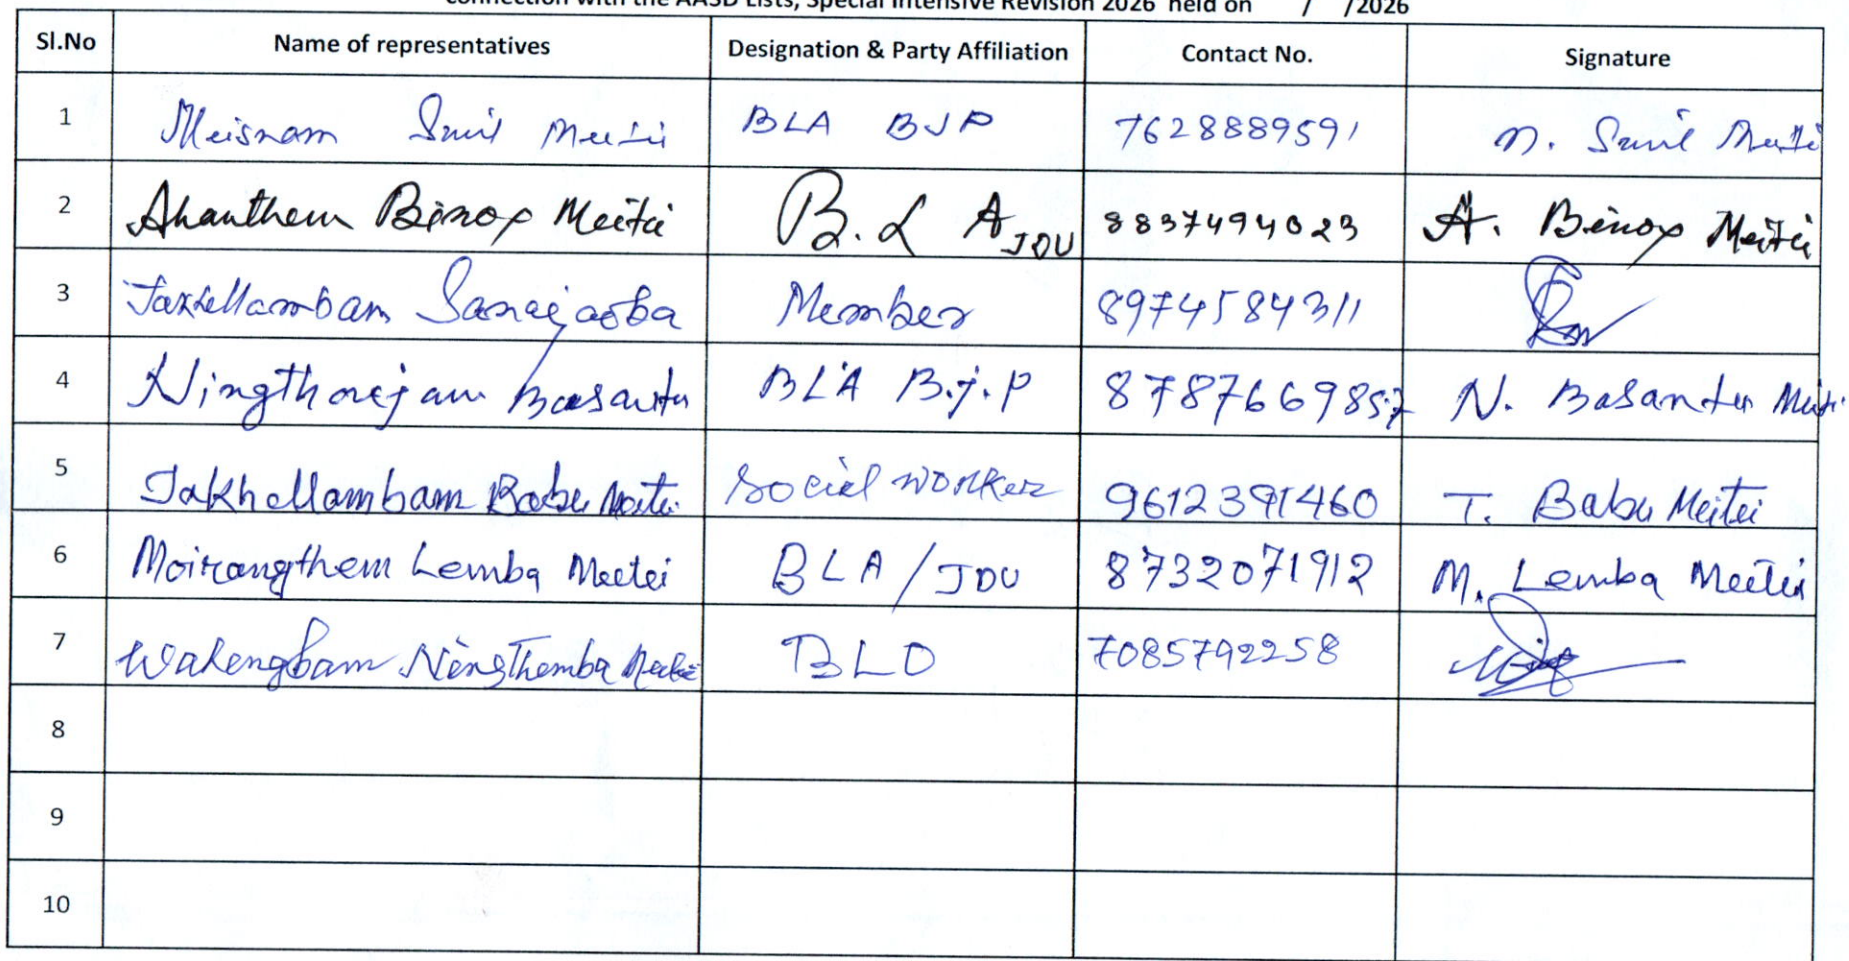 connection with the AASD Lists, Special Intensive Revision 2026 held on / /2026
Sl.No Name of representatives Designation & Party Affiliation Contact No. Signature
1 Meisnam Sunil Meitei BLA BJP 7628889591 M. Sunil Meitei
2 Ahanthem Binoy Meitei B.L A JDU 8837494023 A. Binoy Meitei
3 Takhellambam Sanajaoba Member 8974584311
4 Ningthoujam Basanta BLA B.J.P 8787669857 N. Basanta Meitei
5 Takhellambam Babu Meitei Social worker 9612391460 T. Babu Meitei
6 Moirangthem Lemba Meetei BLA/JDU 8732071912 M. Lemba Meetei
7 Wakengbam Ningthemba Meitei BLO 7085792258
8
9
10